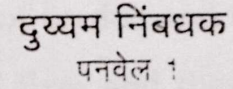 दुय्यम निंबधक
पनवेल १